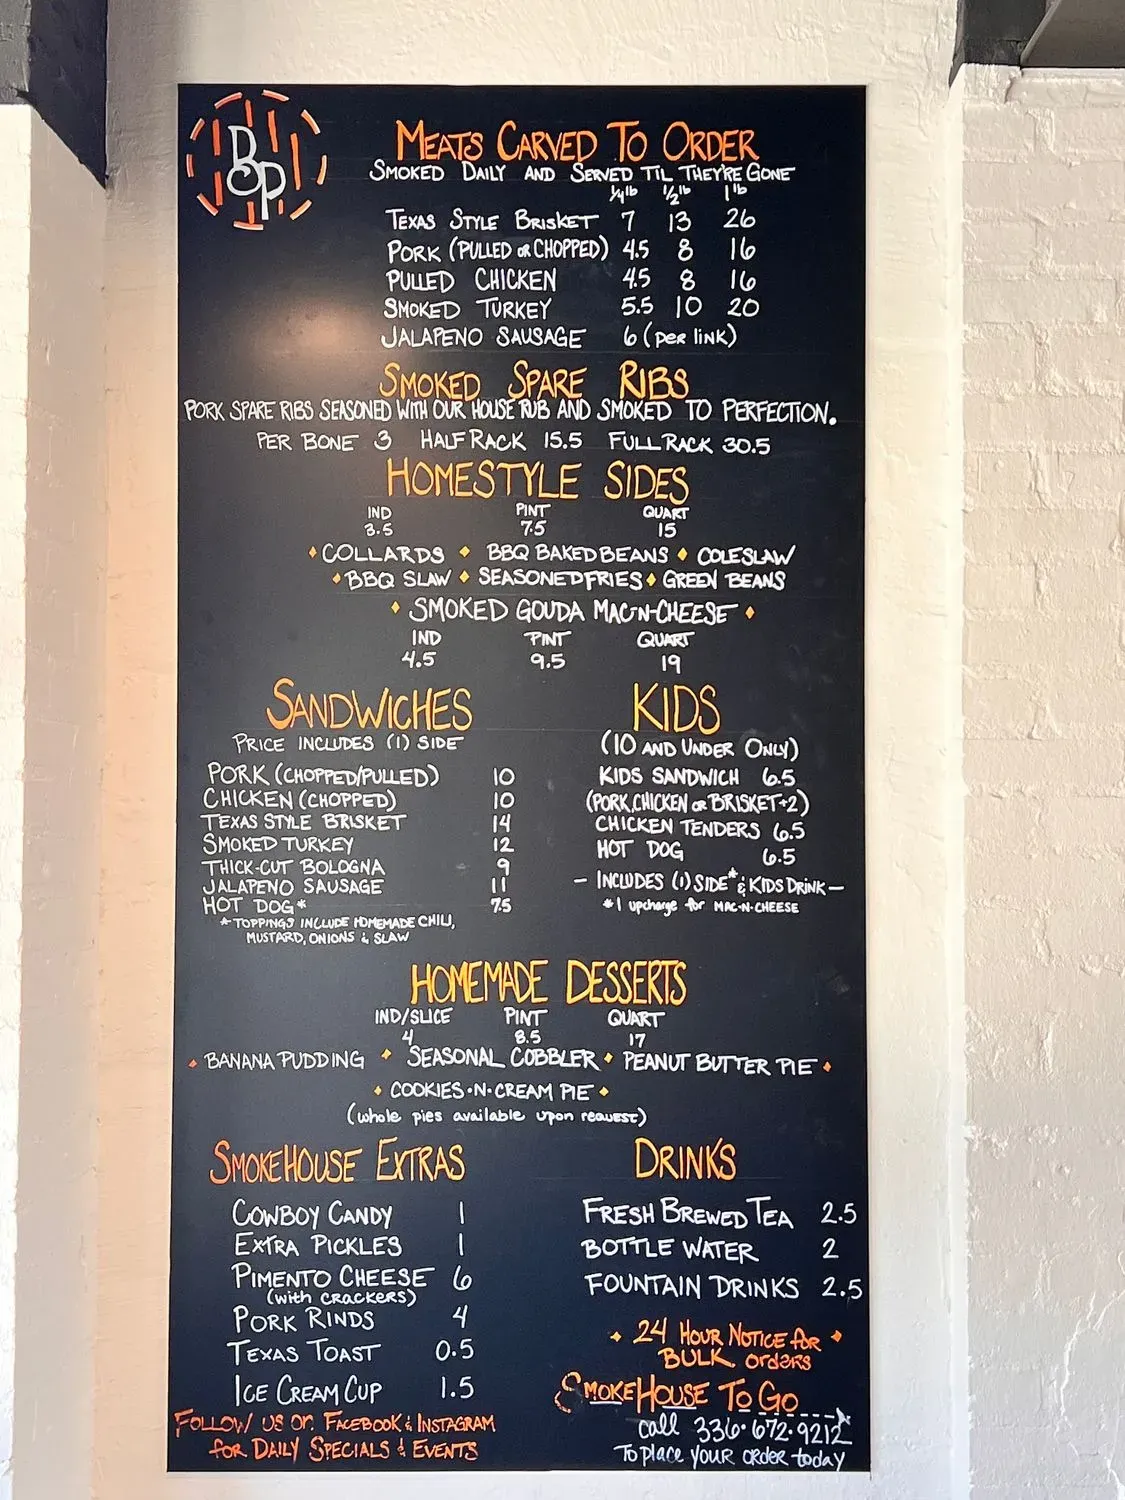 BSP
MEATS CARVED TO ORDER
SMOKED DAILY AND SERVED TIL THEY'RE GONE
1/4 lb 1/2 lb 1 lb
TEXAS STYLE BRISKET 7 13 26
PORK (PULLED OR CHOPPED) 4.5 8 16
PULLED CHICKEN 4.5 8 16
SMOKED TURKEY 5.5 10 20
JALAPENO SAUSAGE 6 (per link)
SMOKED SPARE RIBS
PORK SPARE RIBS SEASONED WITH OUR HOUSE RUB AND SMOKED TO PERFECTION.
PER BONE 3 HALF RACK 15.5 FULL RACK 30.5
HOMESTYLE SIDES
IND PINT QUART
3.5 7.5 15
COLLARDS BBQ BAKED BEANS COLESLAW
BBQ SLAW SEASONED FRIES GREEN BEANS
SMOKED GOUDA MAC-N-CHEESE
IND PINT QUART
4.5 9.5 19
SANDWICHES
PRICE INCLUDES (1) SIDE
PORK (CHOPPED/PULLED) 10
CHICKEN (CHOPPED) 10
TEXAS STYLE BRISKET 14
SMOKED TURKEY 12
THICK-CUT BOLOGNA 9
JALAPENO SAUSAGE 11
HOT DOG* 7.5
*TOPPINGS INCLUDE HOMEMADE CHILI,
MUSTARD, ONIONS & SLAW
KIDS
(10 AND UNDER ONLY)
KIDS SANDWICH 6.5
(PORK, CHICKEN OR BRISKET+2)
CHICKEN TENDERS 6.5
HOT DOG 6.5
- INCLUDES (1) SIDE* & KIDS DRINK -
*1 upcharge for MAC-N-CHEESE
HOMEMADE DESSERTS
IND/SLICE PINT QUART
4 8.5 17
BANANA PUDDING SEASONAL COBBLER PEANUT BUTTER PIE
COOKIES-N-CREAM PIE
(whole pies available upon request)
SMOKEHOUSE EXTRAS
COWBOY CANDY 1
EXTRA PICKLES 1
PIMENTO CHEESE 6
(with crackers)
PORK RINDS 4
TEXAS TOAST 0.5
ICE CREAM CUP 1.5
FOLLOW US on FACEBOOK & INSTAGRAM
for DAILY SPECIALS & EVENTS
DRINKS
FRESH BREWED TEA 2.5
BOTTLE WATER 2
FOUNTAIN DRINKS 2.5
24 HOUR NOTICE for
BULK orders
SMOKEHOUSE TO GO
call 336-672-9212
To place YOUR order today